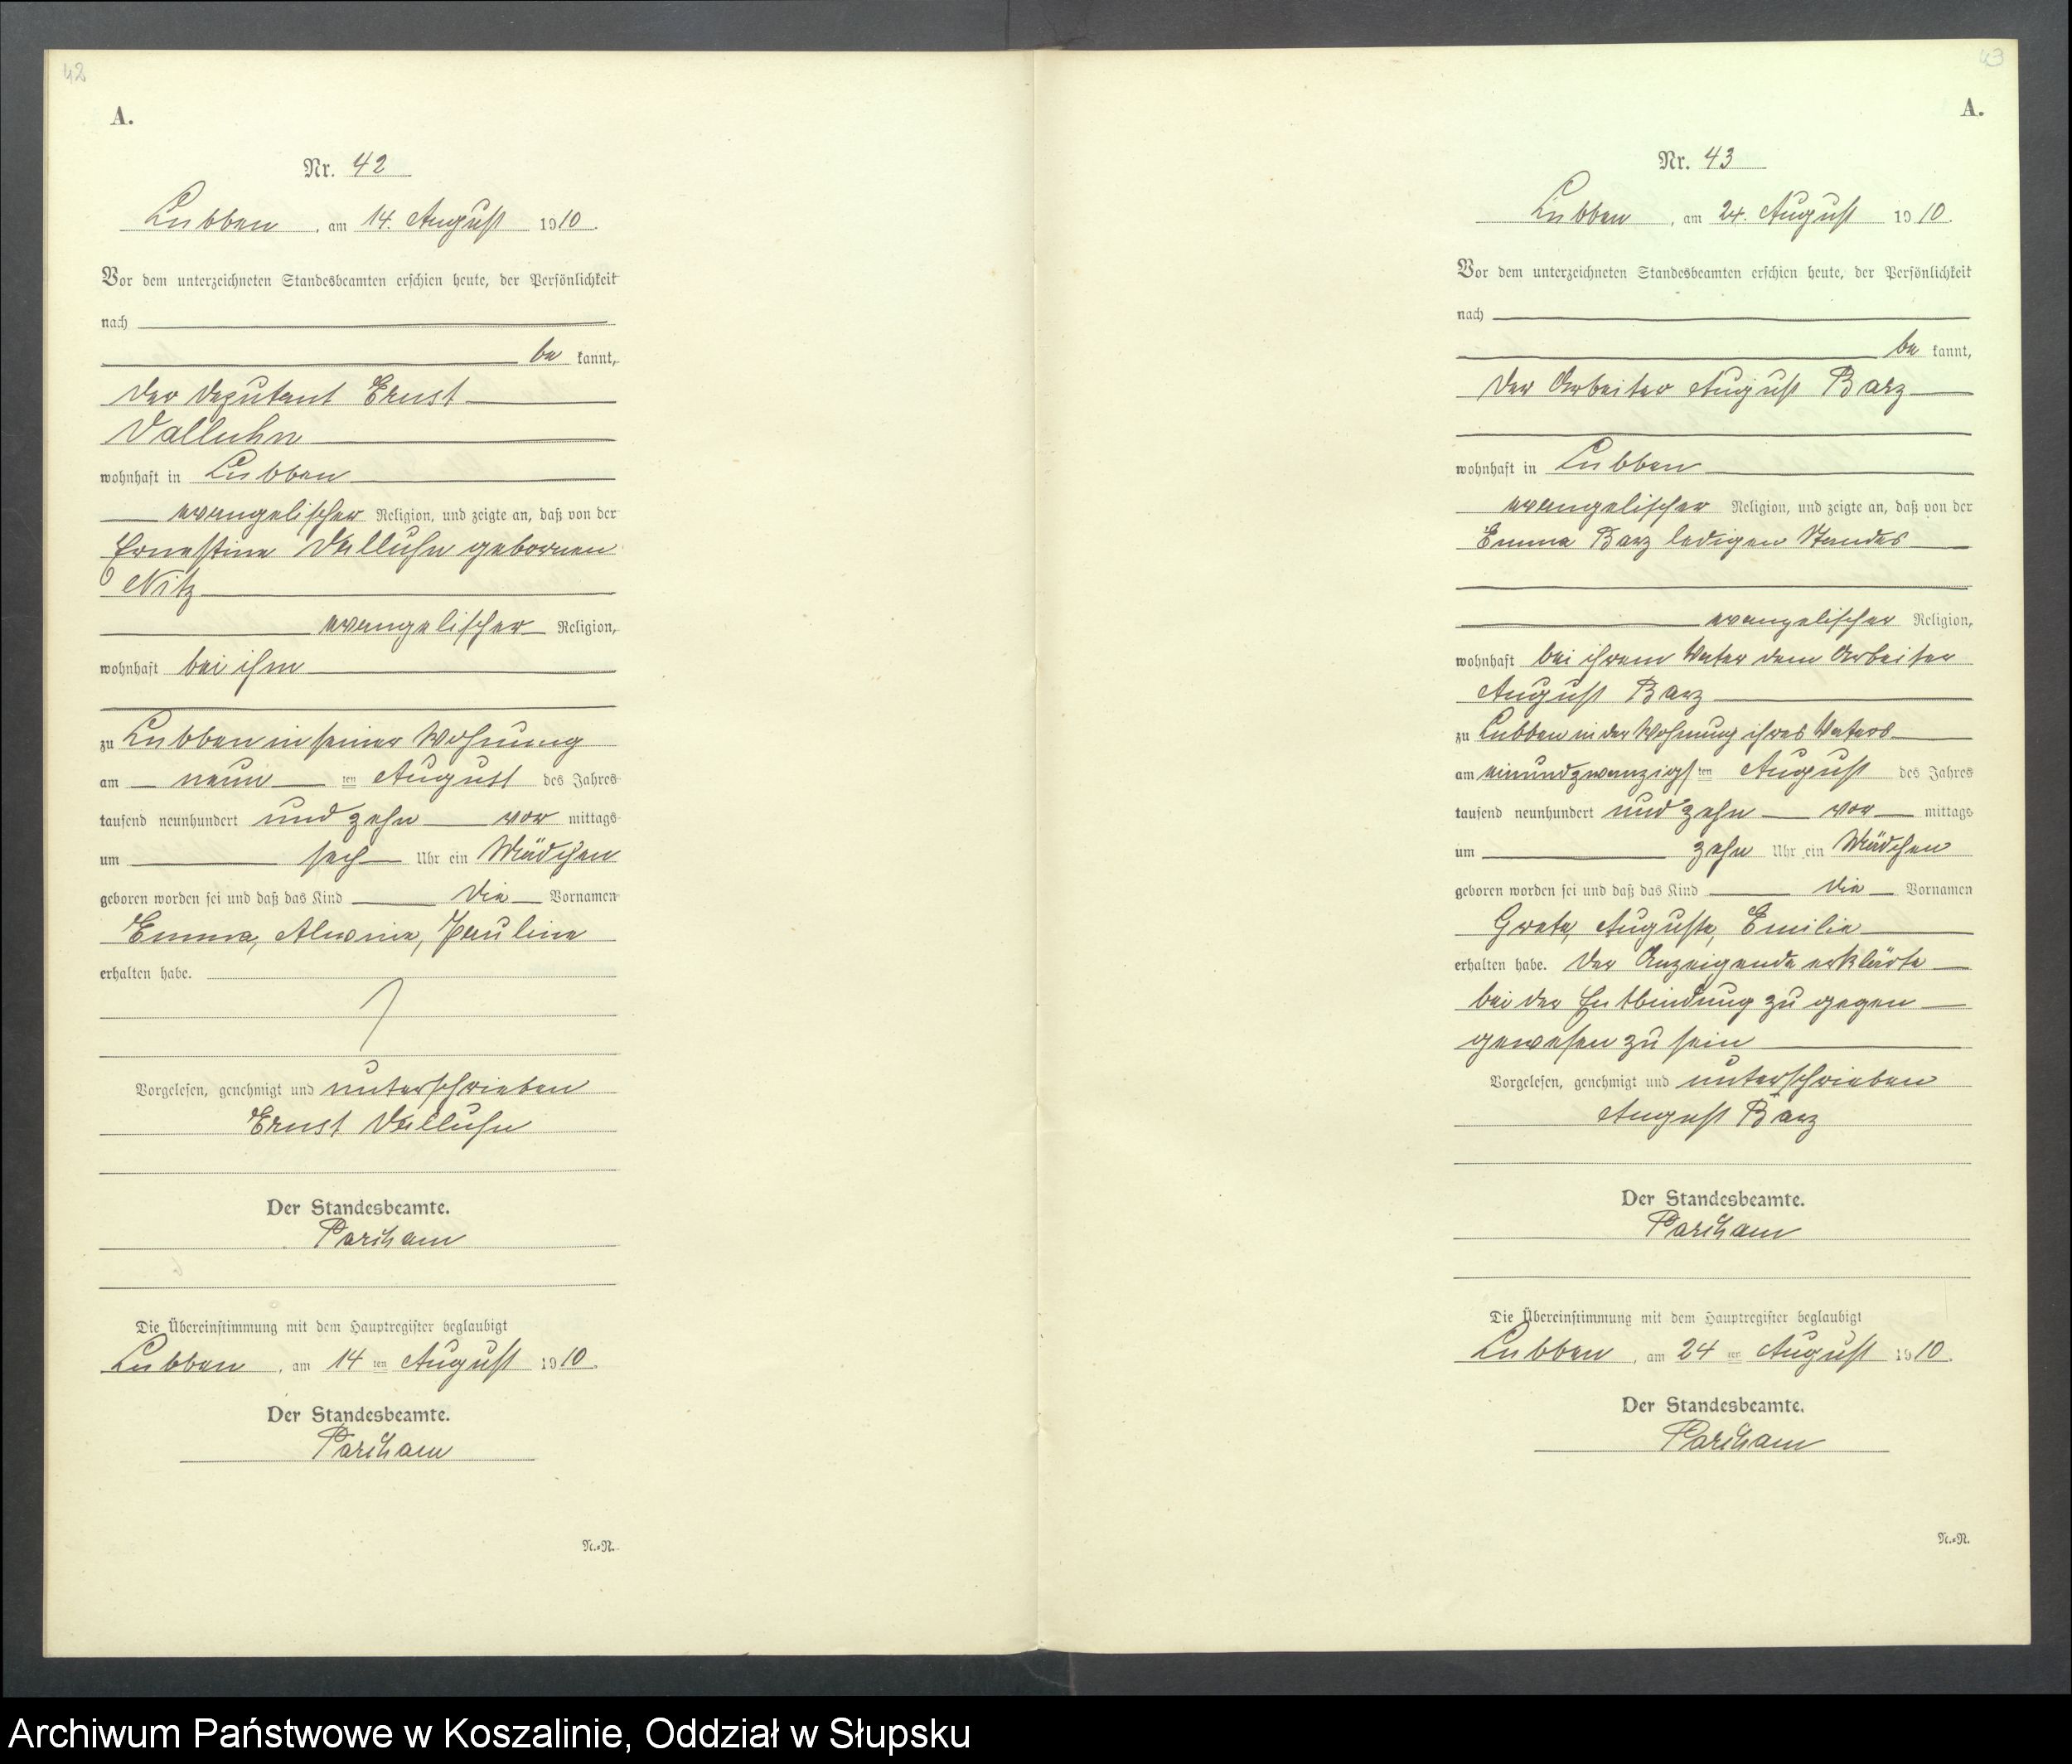 42
A.
Nr. 42
Lubben, am 14. August 1910.
Vor dem unterzeichneten Standesbeamten erschien heute, der Persönlichkeit
nach
be kannt,
der Deputant Ernst
Dalluhn
wohnhaft in Lubben
evangelischer Religion, und zeigte an, daß von der
Ernestine Dalluhn geborenen
Nitz
evangelischer Religion,
wohnhaft bei ihm
zu Lubben in seiner Wohnung
am neun ten August des Jahres
tausend neunhundert und zehn vor mittags
um sech Uhr ein Mädchen
geboren worden sei und daß das Kind die Vornamen
Emma, Alwine, Pauline
erhalten habe.
Vorgelesen, genehmigt und unterschrieben
Ernst Dalluhn
Der Standesbeamte.
Die Übereinstimmung mit dem Hauptregister beglaubigt
Lubben, am 14 ten August 1910.
Der Standesbeamte.
N.=N.
43
A.
Nr. 43
Lubben, am 24. August 1910.
Vor dem unterzeichneten Standesbeamten erschien heute, der Persönlichkeit
nach
be kannt,
der Arbeiter August Barz
wohnhaft in Lubben
evangelischer Religion, und zeigte an, daß von der
Emma Barz ledigen Standes
evangelischer Religion,
wohnhaft bei ihrem Vater dem Arbeiter
August Barz
zu Lubben in der Wohnung ihres Vaters
am einundzwanzigs ten August des Jahres
tausend neunhundert und zehn vor mittags
um zehn Uhr ein Mädchen
geboren worden sei und daß das Kind die Vornamen
Grete, Auguste, Emilie
erhalten habe. Der Anzeigende erklärte
bei der Entbindung zu gegen
gewesen zu sein
Vorgelesen, genehmigt und unterschrieben
August Barz
Der Standesbeamte.
Die Übereinstimmung mit dem Hauptregister beglaubigt
Lubben, am 24 ten August 1910.
Der Standesbeamte.
N.=N.
Archiwum Państwowe w Koszalinie, Oddział w Słupsku